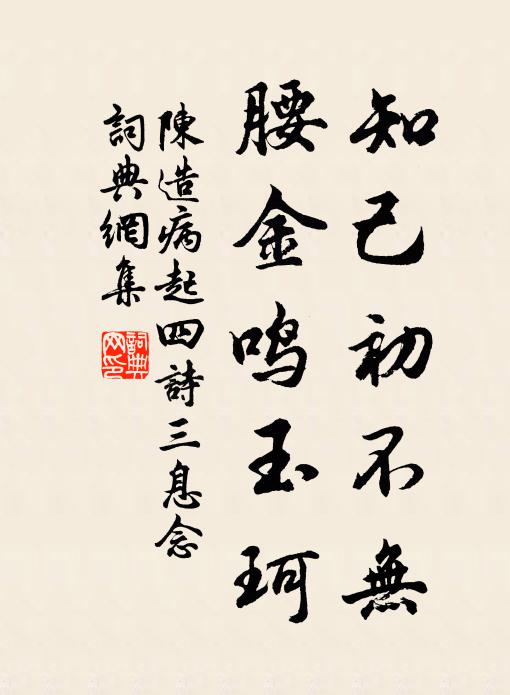 知己初不無
腰金鸣玉珂
陳造病起四詩三息念
詞典網集
詞典网印